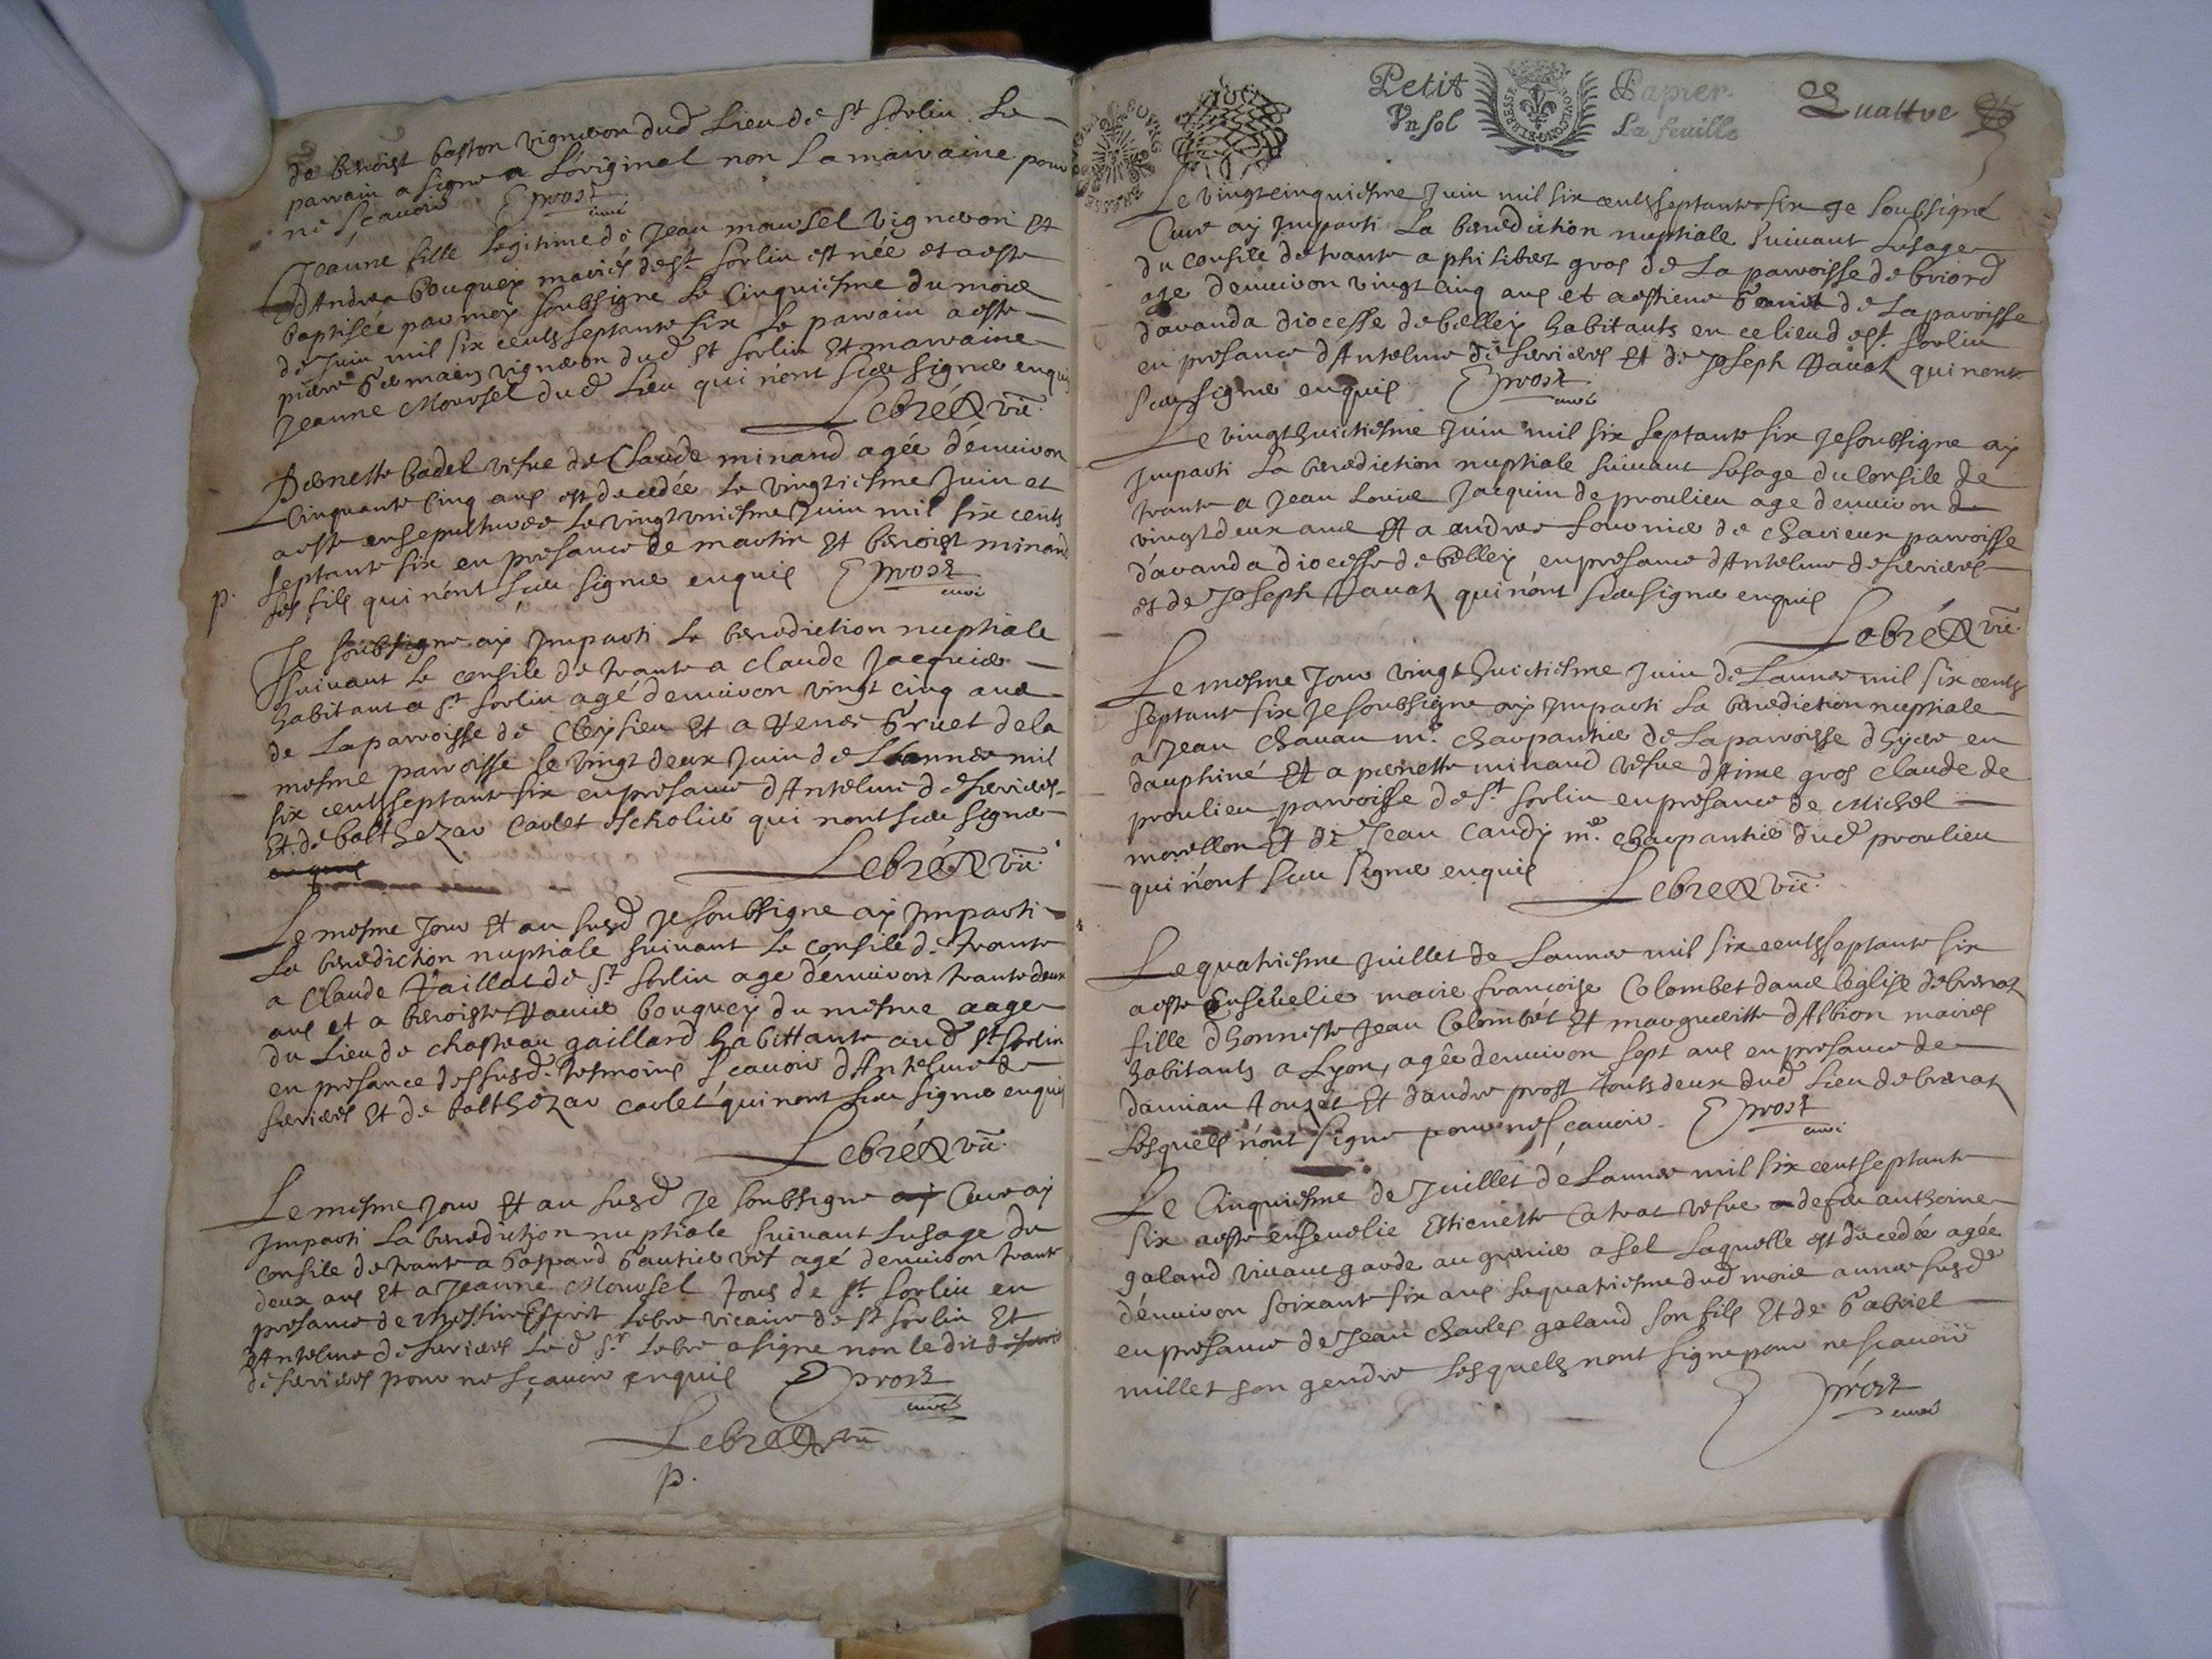 de benoist boston vigneron dud Lieu de St Sorlin. Le
parrain a signe a Loriginal non La marraine pour
ne sçauoir Prost curé
Jeanne fille Legitime de Jean moursel vigneron Et
dAndrea bouquey mariés de St Sorlin est née et a este
baptisée par moy soubsigne Le Cinquiesme du mois
de Juin mil six cents septante six Le parrain a este
pierre Germain vigneron dud St Sorlin Et marraine
Jeanne Moursel dud Lieu qui n'ont sceu signer enquis
Lebre vic.
Pernette badel vefue de Claude minand agée d'enuiron
Cinquante Cinq ans est decedée Le vingtiesme Juin et
a este ensepulturée Le vingt vniesme Juin mil six cents
septante six en presance de martin Et benoist minand
ses fils qui n'ont sceu signer enquis Prost curé
p.
Je soubsigne ay Imparti La benediction nuptiale
suiuant Le consile de trante a Claude Jacquier
habitant a St Sorlin agé denuiron vingt cinq ans
de La parroisse de Cleysieu Et a Gruet de la
mesme parroisse le vingt deux Juin de L'annee mil
six cents septante six en presance d'Antelme de serrieres
Et de balthezar Carlet escholier qui n'ont sceu signer
enquis
Lebre vic.
Le mesme Jour Et an susd Je soubsigne ay Imparti
La benediction nuptiale suiuant Le consile de trante
a Claude Vaillat de St Sorlin age denuiron trante deux
ans et a benoiste bouquey du mesme aage
du Lieu de chasteau gaillard habittante aud St Sorlin
en presance des susd. tesmoins sçauoir dAntelme de
serrieres Et de balthezar carlet qui n'ont sceu signer enquis
Lebre vic.
Le mesme Jour Et an susd Je soubsigne ay Curé ay
Imparti La benediction nuptiale suiuant Lusage du
consile de trante a Gaspard Gautier vef agé denuiron trante
deux ans Et a Jeanne Moursel tous de St Sorlin en
presance de Messire Esprit Lebre vicaire de St Sorlin Et
dAntelme de serrieres Led Sr Lebre a signe non le dit
de serrieres pour ne sçauoir enquis Prost curé
Lebre vic
p.
Petit Papier
Vn sol La feuille
Quattre
Le vingtcinquiesme Juin mil six cents septante six Je soubsigné
Curé ay Imparti La benediction nuptiale suiuant Lusage
du consile de trante a philibert gros de La parroisse de briord
age denuiron vingt cinq ans et a estiene de La parroisse
d'aranda diocesse de belley habitants en ce lieu de St Sorlin
en presance d'Antelme de serrieres Et de Joseph qui n'ont
sceu signer enquis Prost curé
Le vingt huictiesme Juin mil six septante six Je soubsigne ay
Imparti La benediction nuptiale suiuant Lusage du Consile de
trante a Jean Louis Jacquin de proulieu age denuiron de
vingt deux ans Et a andree fournier de Charieux parroisse
d'aranda diocesse de belley en presance dAntelme de serrieres
et de Joseph qui n'ont sceu signer enquis
Lebre vic.
Le mesme Jour vingt huictiesme Juin de L'annee mil six cents
septante six Je soubsigne ay Imparti La benediction nuptiale
a Jean Chauan me. charpantier de La parroisse en
dauphiné Et a pernette minand vefue dAime gros Claude de
proulieu parroisse de St Sorlin en presance de Michel
morellon Et de Jean Candy me. charpantier dud proulieu
qui n'ont sceu signer enquis
Lebre vic.
Le quatriesme Juillet de L'annee mil six cents septante six
a este Enseuelie marie francoise Colombet dans leglise de
fille dhonneste Jean Colombet Et marguerite dAlbion mariés
habitants a Lyon, agée denuiron sept ans en presance de
damian touzet Et dandre prost touts deux dud Lieu de
Lesquels n'ont signe pour ne sçauoir. Prost curé
Le Cinquiesme de Juillet de L'annee mil six cent septante
six a este enseuelie Estienette Catrat vefue de feu anthoine
galand viuant garde au grenier a sel Laquelle est decedée agée
d'enuiron soixante six ans Le quatriesme dud mois annee susde
en presance de Jean Charles galand son fils Et de Gabriel
millet son gendre Lesquels n'ont signe pour ne sçauoir
Prost curé